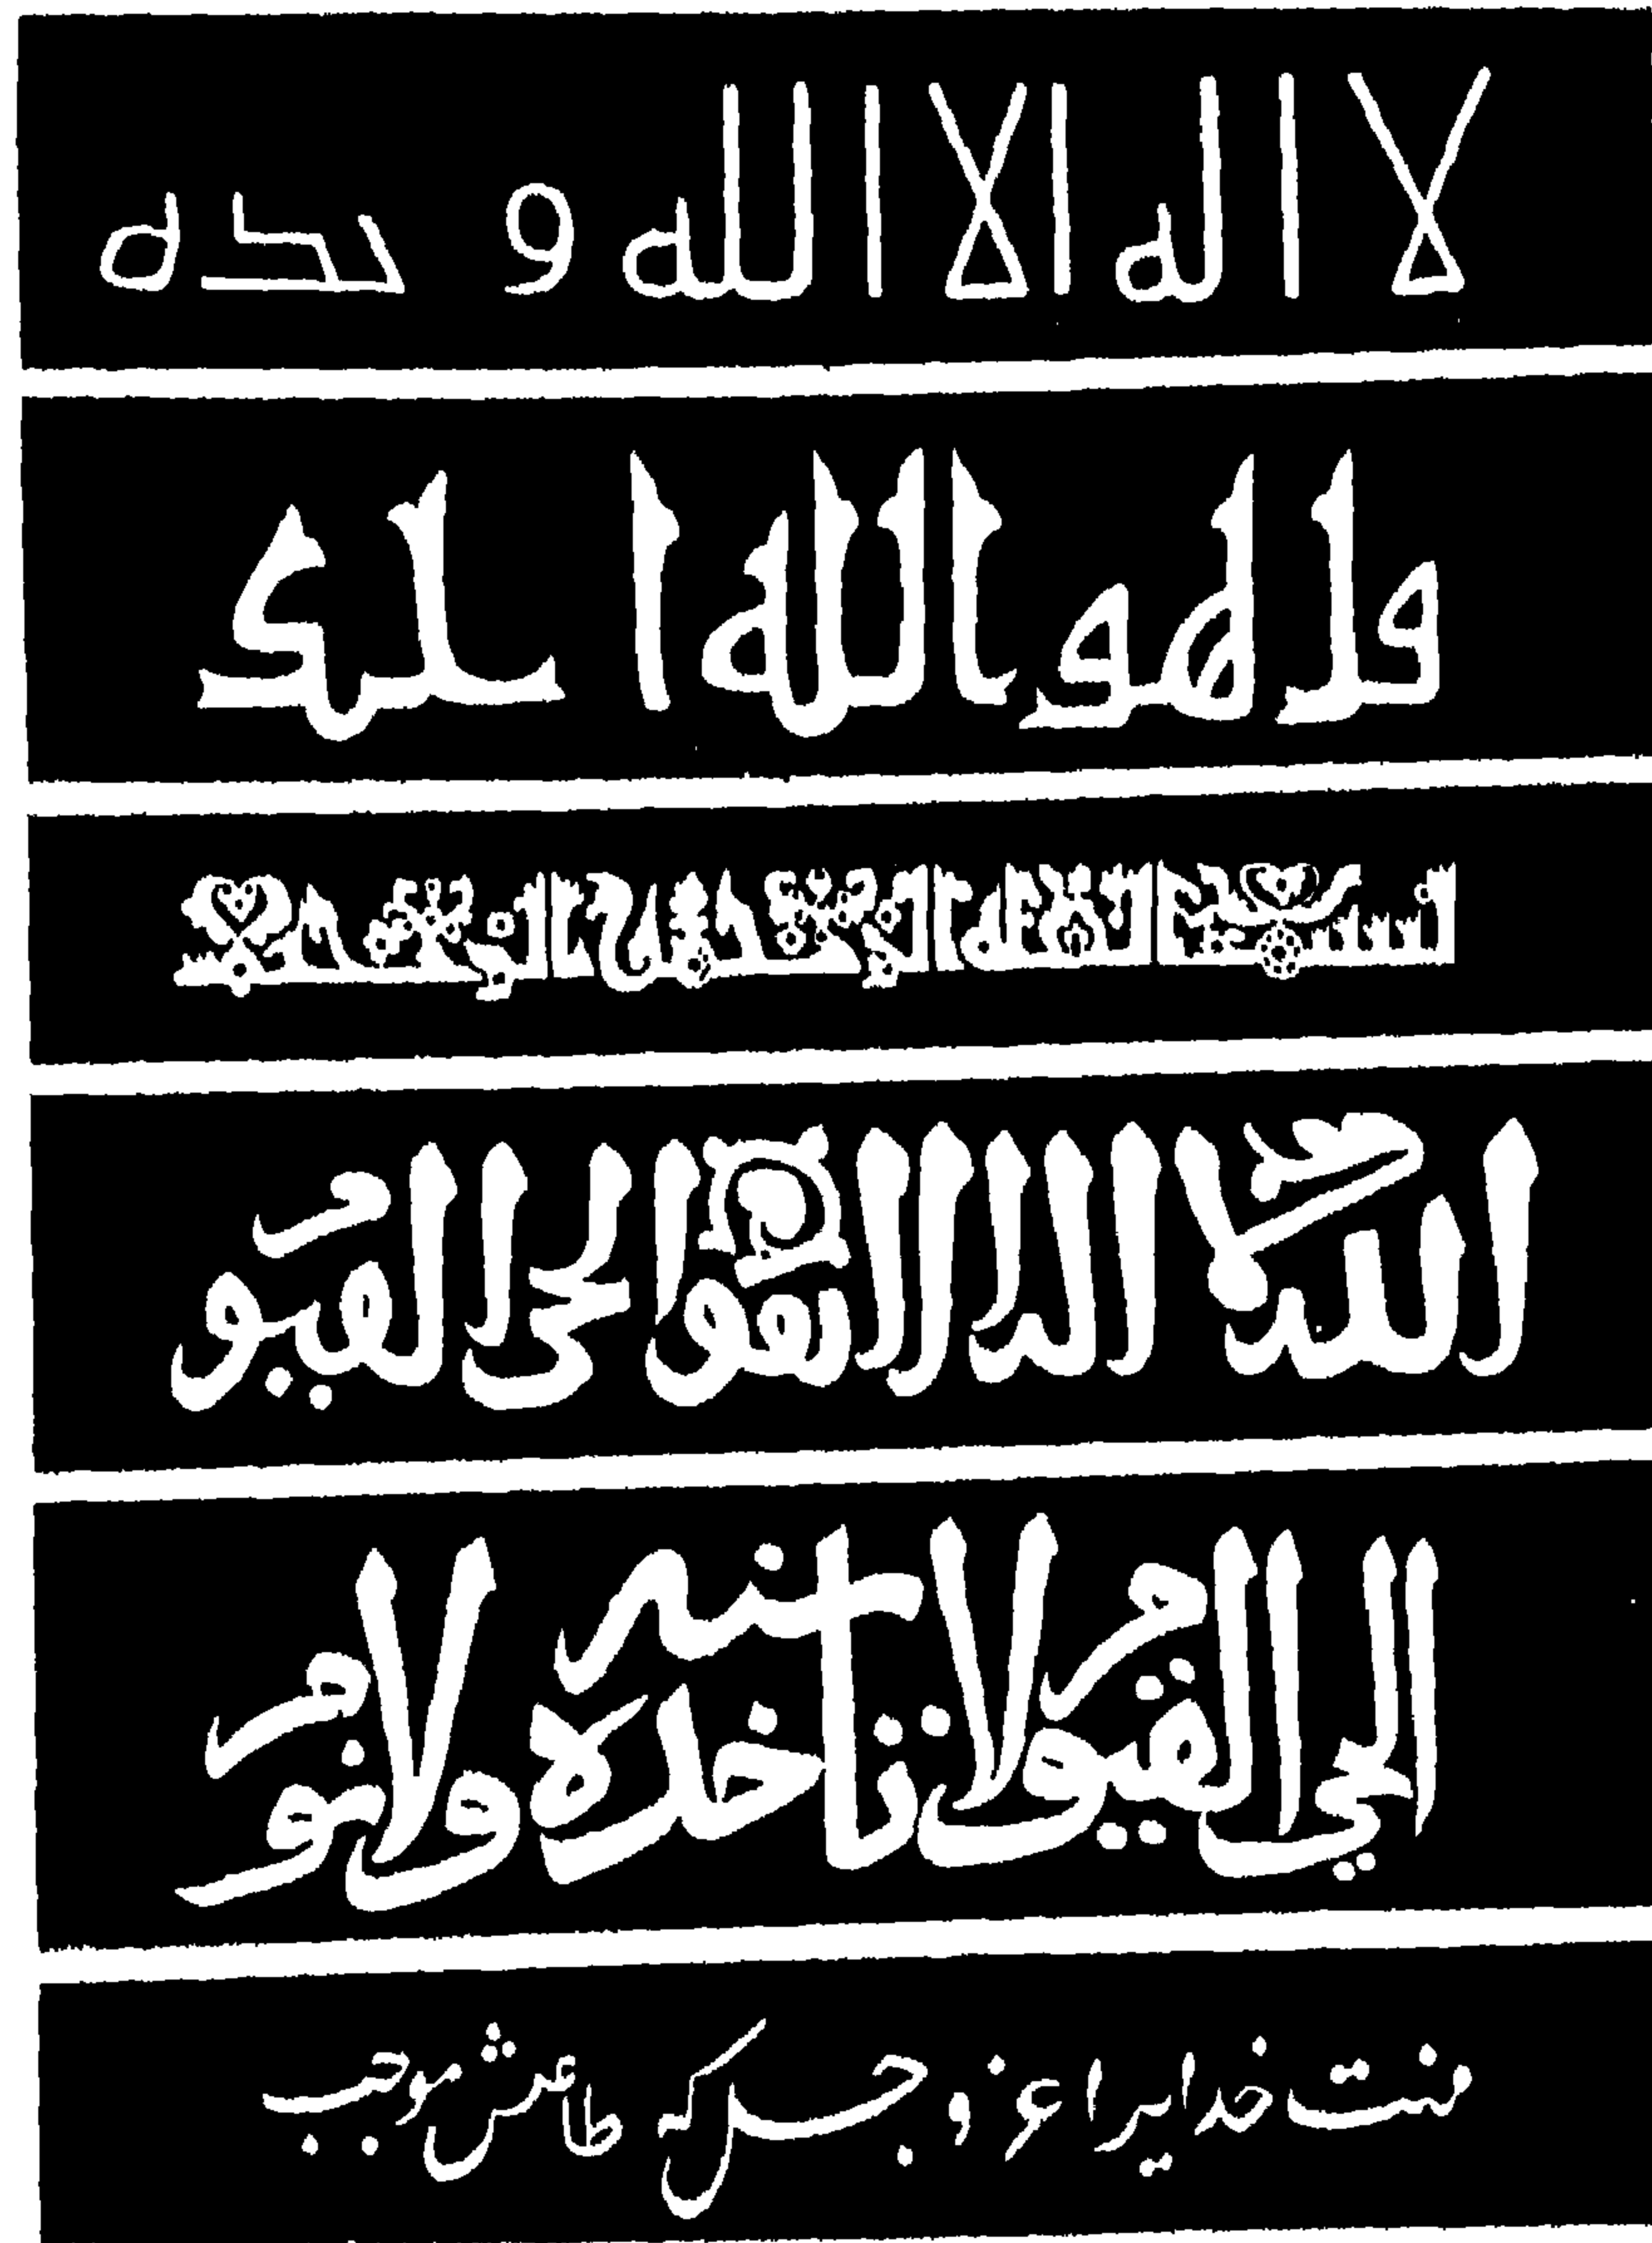 لا اله الا الله وحده
قل هو الله
بسم الله الرحمن الرحيم
الله لا اله الا هو الحى القيوم
الحي القيوم لا تاخذه سنه ولا نوم
منت خدایرا عز و جل که طاعتش موجب